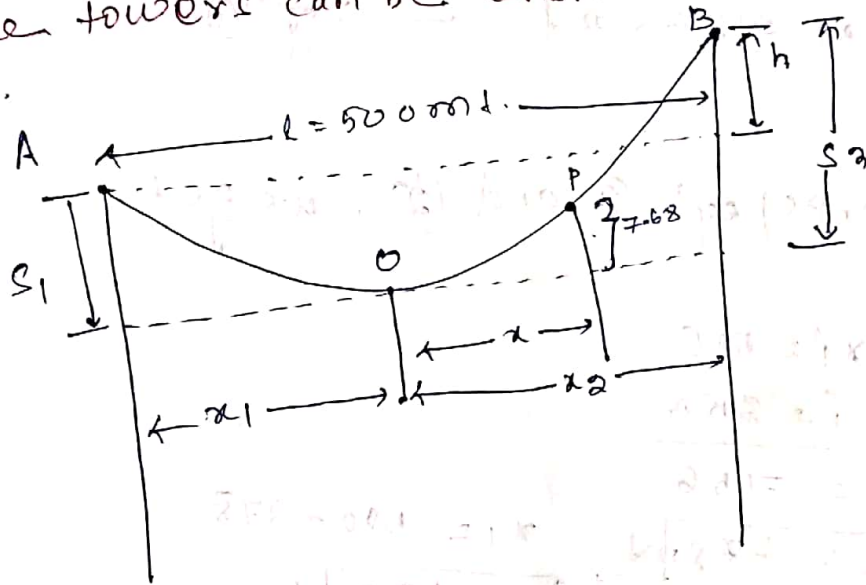 towers can be
B
h
l = 500 mt.
A
S2
P
7.68
S1
O
x
x2
x1